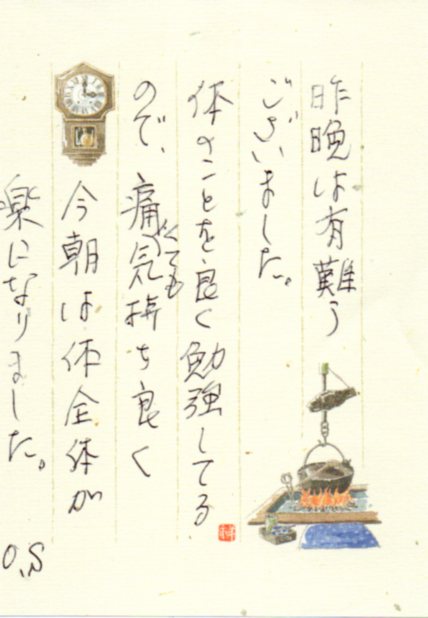 昨晩は有難う
ございました。
体のことを良く勉強してる
ので、痛くても気持ち良く
今朝は体全体が
楽になりました。
O.S